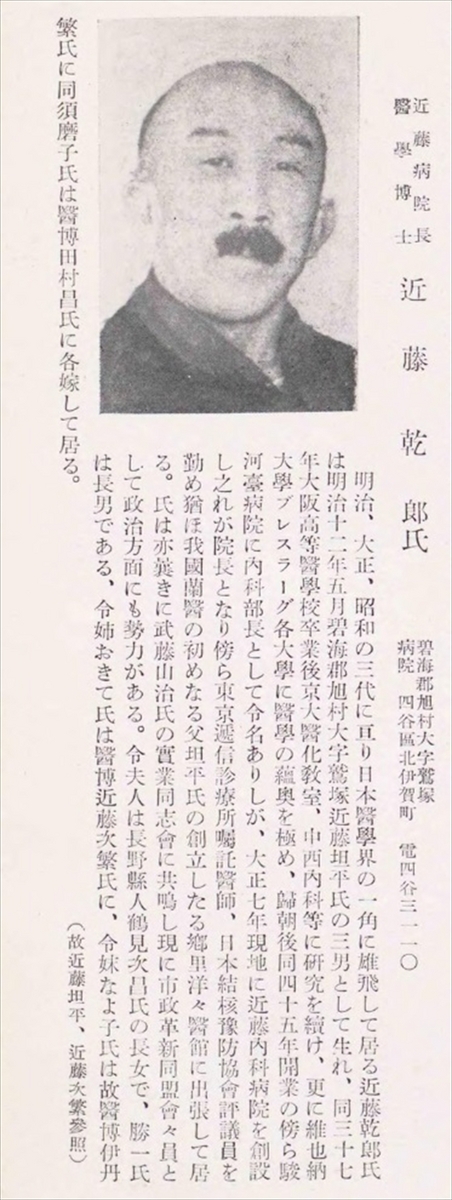 近藤病院長
醫學博士
近藤乾郎氏
碧海郡旭村大字鷲塚
病院 四谷區北伊賀町 電四谷三一一〇
明治、大正、昭和の三代に亘り日本醫學界の一角に雄飛して居る近藤乾郎氏
は明治十二年五月碧海郡旭村大字鷲塚近藤坦平氏の三男として生れ、同三十七
年大阪高等醫學校卒業後京大醫化教室、中西內科等に研究を續け、更に維也納
大學ブレスラーグ各大學に醫學の蘊奧を極め、歸朝後同四十五年開業の傍ら駿
河臺病院に內科部長として令名ありしが、大正七年現地に近藤內科病院を創設
し之れが院長となり傍ら東京遞信診療所囑託醫師、日本結核豫防協會評議員を
勤め猶ほ我國蘭醫の初めなる父坦平氏の創立したる鄕里洋々醫館に出張して居
る。氏は亦曩きに武藤山治氏の實業同志會に共鳴し現に市政革新同盟會々員と
して政治方面にも勢力がある。令夫人は長野縣人鶴見次昌氏の長女で、勝一氏
は長男である、令姉おきて氏は醫博近藤次繁氏に、令妹なよ子氏は故醫博伊丹
繁氏に同須磨子氏は醫博田村昌氏に各嫁して居る。
(故近藤坦平、近藤次繁參照)